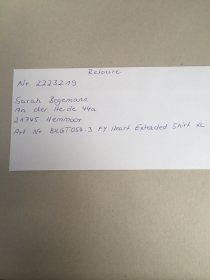 Retoure
Nr. 2223219
Sarah Bogemann
An der Heide 44a
21745 Hemmoor
Art. Nr. BKGTD56-3 PJ Heart Extended Shirt XL